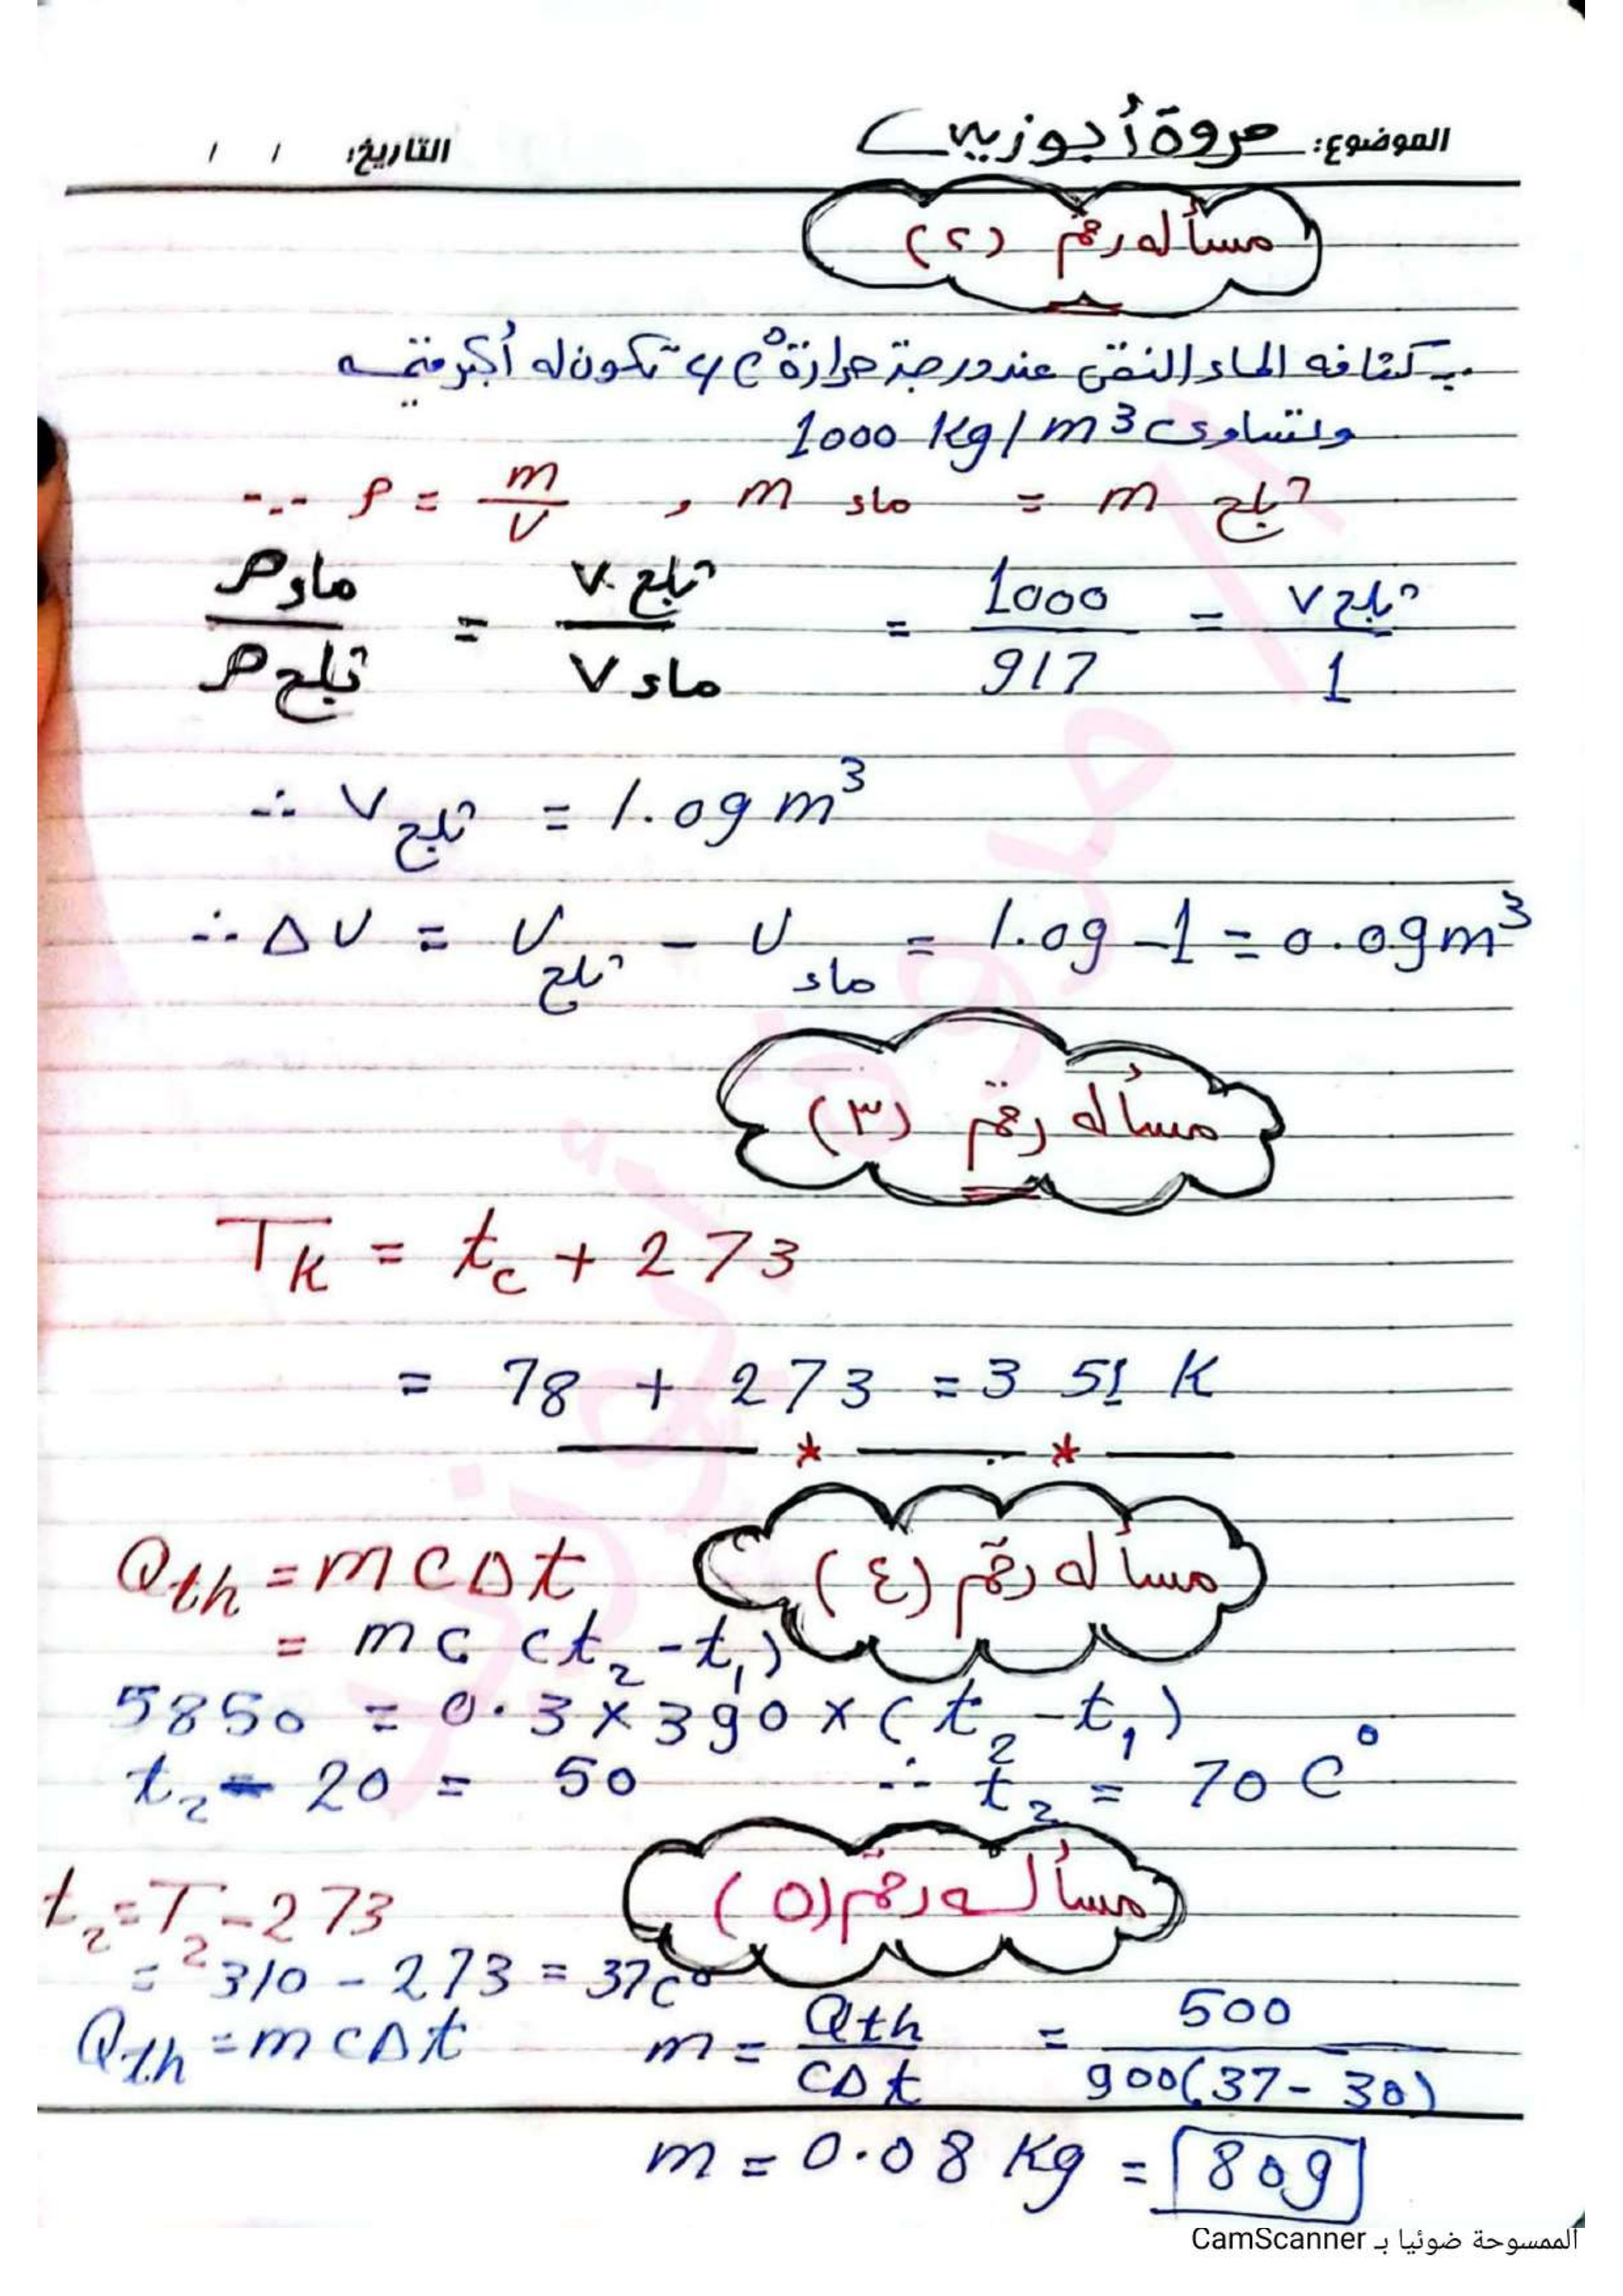 الموضوع: مروة أبوزيد التاريخ: / /
مسأله رقم (٢)
∵ كثافه الماء النقى عند درجة حرارة 4 C° تكون له أكبر قيمه
وتساوى 1000 Kg/m³
∵ ρ = m/V , m ماء = m ثلج
ρ ماء / ρ ثلج = V ثلج / V ماء = 1000/917 = V ثلج / 1
∴ V ثلج = 1.09 m³
∴ ΔV = V ثلج - V ماء = 1.09 - 1 = 0.09 m³
مسأله رقم (٣)
T_K = t_c + 273
= 78 + 273 = 351 K
مسأله رقم (٤)
Q_th = m c Δt
= m c (t₂ - t₁)
5850 = 0.3 × 390 × (t₂ - t₁)
t₂ - 20 = 50 ∴ t₂ = 70 C°
مسأله رقم (٥)
t₂ = T₂ - 273
= 310 - 273 = 37 C°
Q_th = m c Δt m = Q_th / cΔt = 500 / 900(37 - 30)
m = 0.08 Kg = 80g
الممسوحة ضوئيا بـ CamScanner